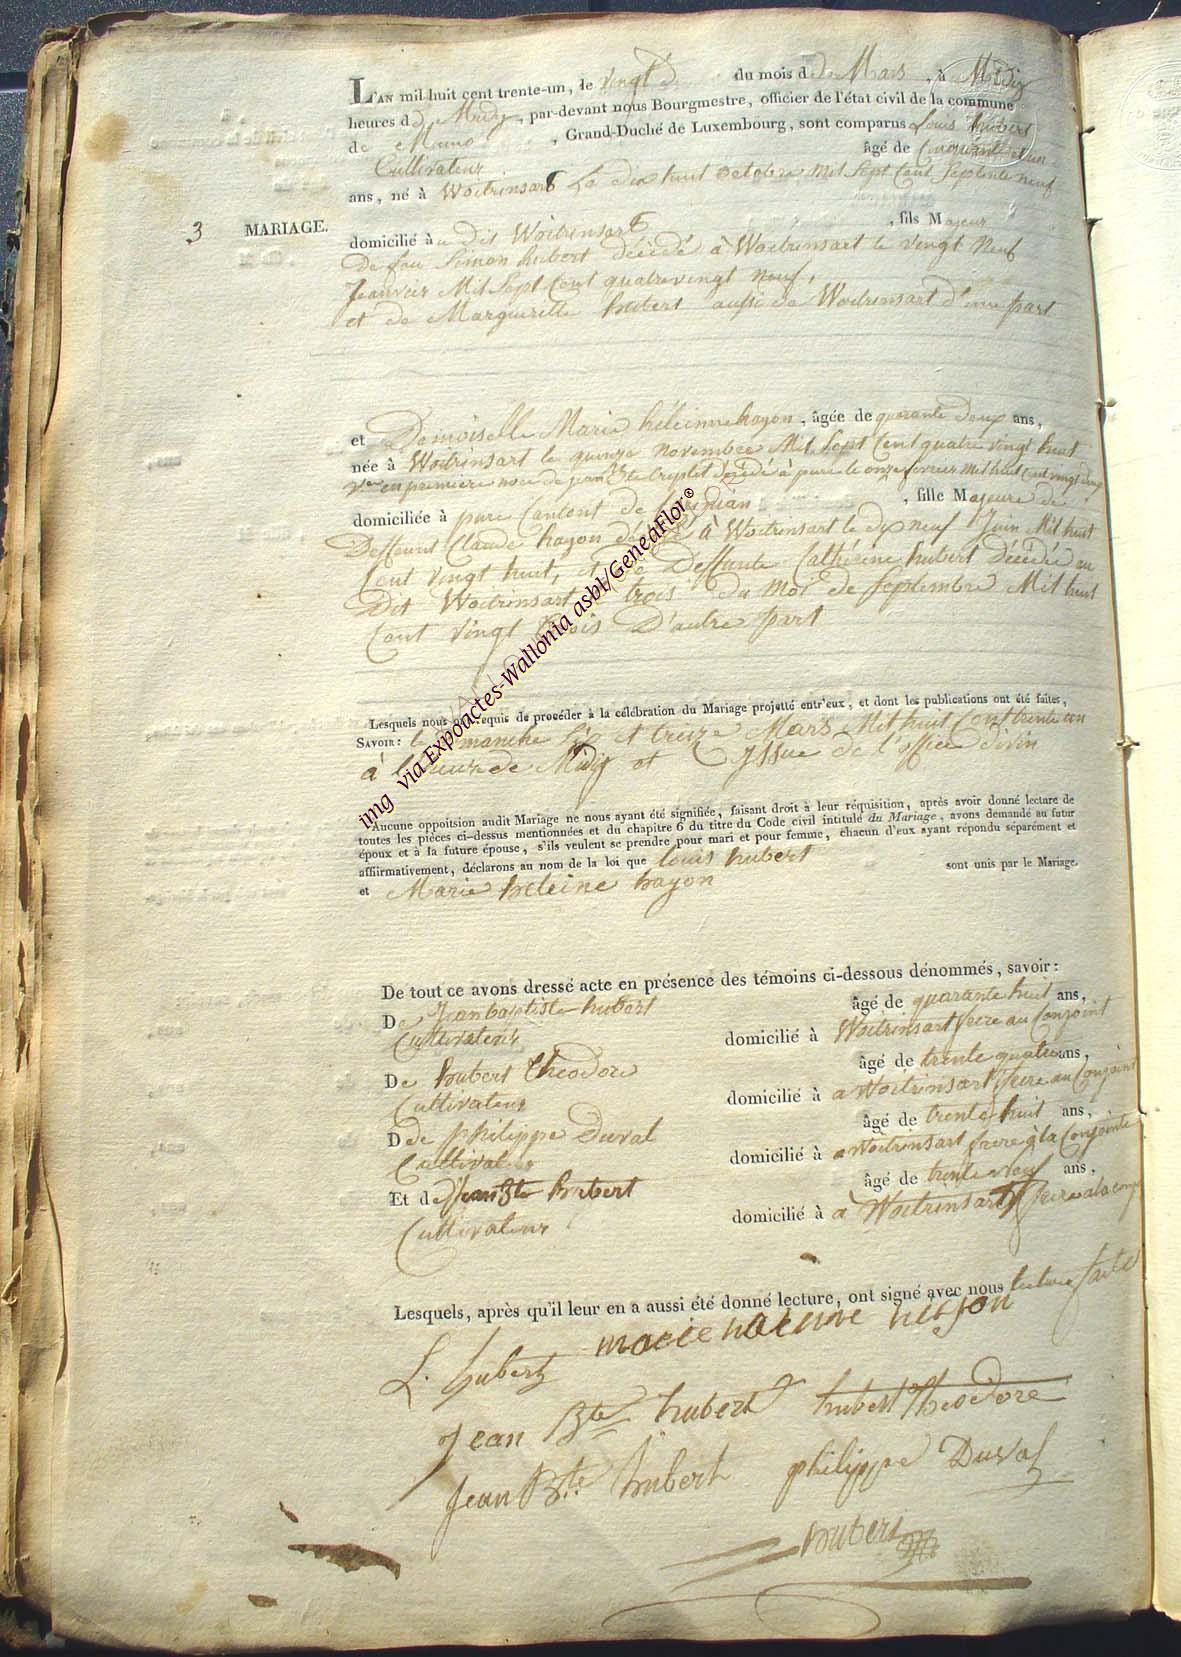 L'AN mil huit cent trente-un, le vingt du mois d de Mars, à Midiz
heures d de Midy, par-devant nous Bourgmestre, officier de l'état civil de la commune
de Muno, Grand-Duché de Luxembourg, sont comparus Louis hubert
Cultivateur âgé de Cinquante un
ans, né à Woitrinsart Le dix huit octobre Mil Sept Cent Septente neuf
3 MARIAGE.
domicilié à u dit Woitrinsart, fils Majeur
De feu Simon hubert décédé à Woitrinsart le vingt Neuf
Janvier Mil Sept Cent quatrevingt neuf,
et de Margueritte hubert aussi de Woitrinsart d'une part
et Demoiselle Marie hèleinne hayon, âgée de quarante deux ans,
née à Woitrinsart le quinze novembre Mil Sept Cent quatre vingt huit
Vve en premiere noce de jean Bte décédé à pure le onze fevrier mil huit Cent vingt
domiciliée à pure Cantont de, fille Majeure de
Deffeunt Claude hayon décédé à Woitrinsart le dix neuf Juin Mil huit
Cent vingt huit, et de Deffunte Cathérine hubert Décédée au
Dit Woitrinsart le trois du Moi de Septembre Mil huit
Cent vingt trois D'autre part
Lesquels nous ont requis de procéder à la célébration du Mariage projetté entr'eux, et dont les publications ont été faites,
SAVOIR: le Dimanche Six et treize Mars Mil huit Cent trente un
à l'heure de Midiz et a yssue de l'office divin
Aucune oppoitsion audit Mariage ne nous ayant été signifiée, faisant droit à leur réquisition, après avoir donné lecture de
toutes les pièces ci-dessus mentionnées et du chapitre 6 du titre du Code civil intitulé du Mariage, avons demandé au futur
époux et à la future épouse, s'ils veulent se prendre pour mari et pour femme, chacun d'eux ayant répondu séparément et
affiirmativement, déclarons au nom de la loi que Louis hubert
et Marie heleine hayon sont unis par le Mariage.
De tout ce avons dressé acte en présence des témoins ci-dessous dénommés, savoir:
De Jean baptiste hubert âgé de quarante huit ans,
Cultivateur domicilié à Woitrinsart frere au Conjoint
De hubert Theodore âgé de trente quatre ans,
Cultivateur domicilié à a Woitrinsart frere au Conjoint
D de philippe Duval âgé de trente huit ans,
Cultivateur domicilié à a Woitrinsart frere à la Conjointe
Et de Jean Bte hubert âgé de trente neuf ans,
Cultivateur domicilié à à Woitrinsart frere a la
Lesquels, après qu'il leur en a aussi été donné lecture, ont signé avec nous lecture faite
L. hubert marie haleine heyon
Jean Bte hubert hubert Theodore
Jean Bte hubert philippe Duval
hubert
img via Expoactes-Wallonia asbl/GeneaFlor®